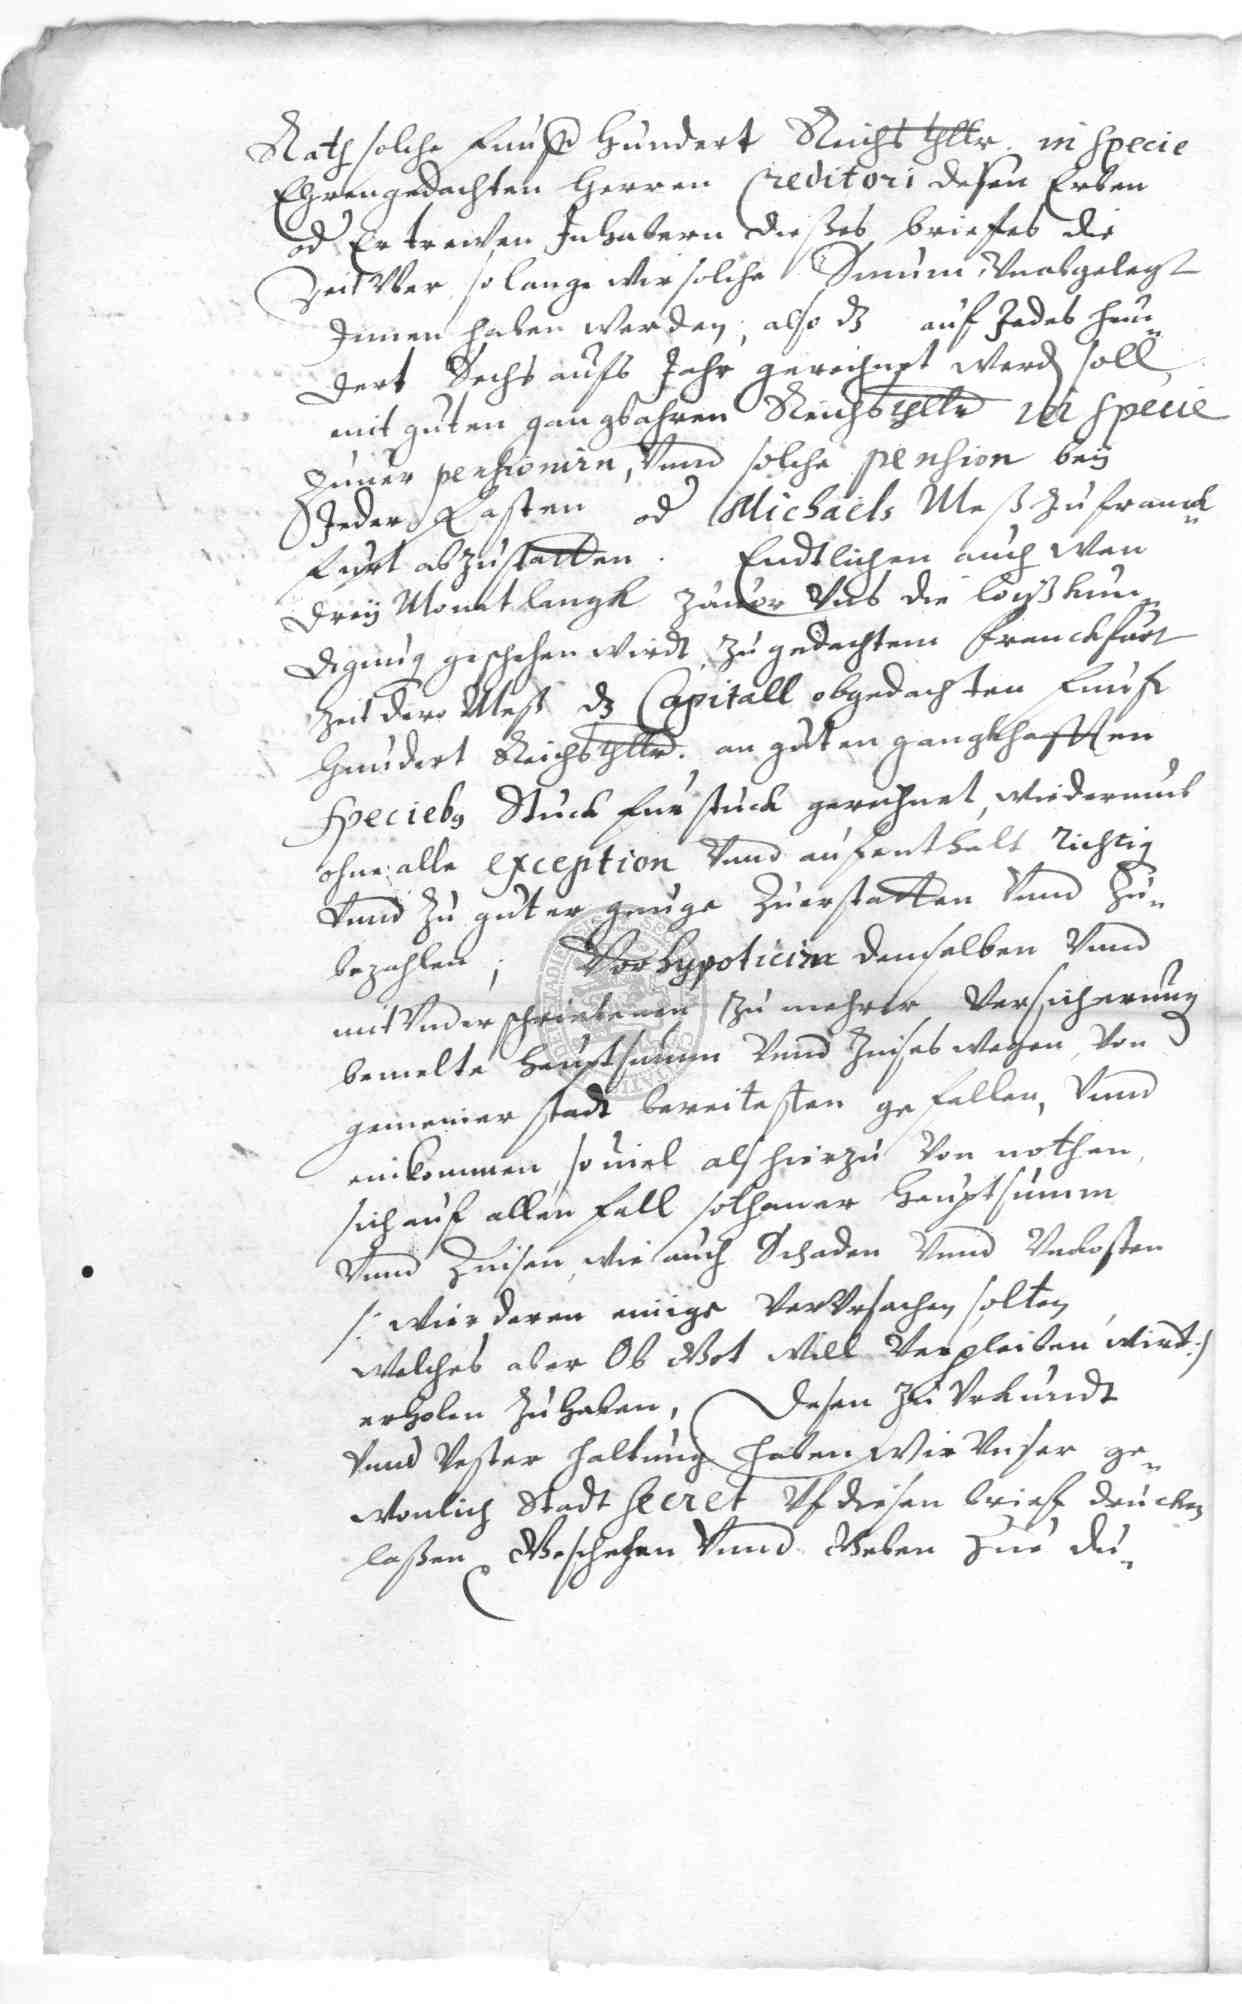 Rath solche Funff Hundert Reichsthllr. in specie
Ehrengedachten Herren Creditori desen Erben
od Getrewen Inhabern dießes briefes die
Zeit Vber, so lange wir solche Summ, Vnabgelegt
Innen haben werden, also dz auf Jedes hun„
dert Sechs aufs Jahr gerechnet werd soll,
mit guten gangbahren Reichsthllr in specie
Zuuer pensionirn, Vnnd solche pension beÿ
Jeder Fasten od Michaels Meß zu franck„
furt abzustatten. Endtlichen auch wan
dreÿ Monat langk zuuor Vns die loißkun„
digung geschehen wirdt, zu gedachtem Franckfurt
Zeit dero Meß dz Capitall obgedachten Funf
Hundert Reichsthllr. an guten gangkhafften
speciebg Stuck fur stuck gerechnet, wiederumb
ohne alle exception Vnnd aufenthalt richtig
Vnnd zu guter genuge Zuerstatten Vnnd Zu„
bezahlen; Vor hypoticirn demselben Vnnd
mit Vnderschriebenen zu mehrer Versicherung
bemelte Hauptsumm Vnnd Zinses wegen, Von
gemeiner stadt bereitesten gefellen, Vnnd
einkommen, souiel als hierzu Von nothen,
sich auf allen fall sothaner Hauptsumm
Vnnd Zinsen, wie auch Schaden Vnnd Vnkosten
/: wir deren einige VerVrsachen solten
welches aber Ob Got will Verpleiben wirt :/
erholen zu haben, Desen zu Vrkundt
Vnnd Vester haltung haben wir Vnser ge„
wonlich Stadt Secret Vf diesen brief drucken
laßen, Geschehen Vnnd Geben Zue du„